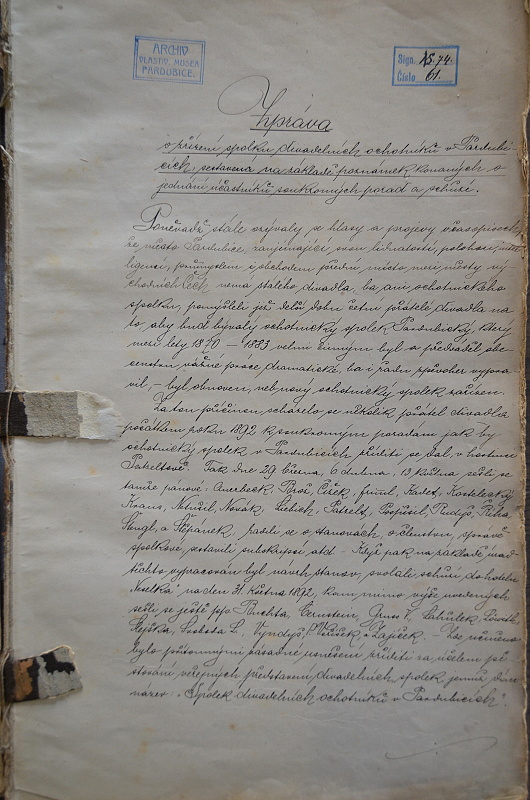 ARCHIV
VLASTIV. MUSEA
PARDUBICE.
Sign. 74.
Číslo 61.
Zpráva
o zřízení spolku divadelních ochotníků v Pardubi-
cích, sestavena na základě poznámek konaných o
jednání účastníků soukromých porad a schůzí.
Poněvadž stále ozývaly se hlasy a projevy v časopisech,
že město Pardubice, zaujímající svou lidnatostí, polohou, inte-
ligencí, průmyslem i obchodem přední místo mezi městy vý-
chodních Čech, nemá stálého divadla, ba ani ochotnického
spolku, pomýšleli již delší dobu četní přátelé divadla na
to, aby buď bývalý ochotnický spolek Pardubický, který
mezi léty 1870 – 1883 velmi činným byl a předváděl obe-
censtvu vážné práce dramatické, ba i řadu zpěvoher vypra-
vil, – byl obnoven, neb nový ochotnický spolek zařízen.
Za tou příčinou scházelo se několik přátel divadla
počátkem roku 1892 k soukromým poradám jak by
ochotnický spolek v Pardubicích zříditi se dal, v hostinci
Tak dne 29 března, 6 dubna, 13 května sešli se
tamže pánové: Auerbeck, Brož, Čížek, Kadeř, Kostelecký
Kraus, Netušil, Novák, Liebich, Pospíšil, Rudyš, Říha,
Šengl, a Štěpánek, radili se o stanovách, o členstvu, správě
spolkové, sestavili subskripci atd – Když pak na základě porad
těchto vypracován byl návrh stanov, svolali schůzi do hotelu
"Veselka" na den 31. května 1892, kam mimo výše uvedených
sešli se ještě pp. Buchta, Černstein, Labulek,
Svoboda L., Vyndyš, a Zajíček.
bylo přítomnými zásadné usnesení zříditi za účelem pě-
stování veřejných představení divadelních spolek jemuž dáno
název: "Spolek divadelních ochotníků v Pardubicích".